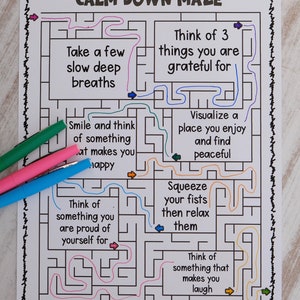 CALM DOWN MAZE
Take a few
slow deep
breaths
Think of 3
things you are
grateful for
Smile and think
of something
that makes you
happy
Visualize a
place you enjoy
and find
peaceful
Squeeze
your fists
then relax
them
Think of
something you
are proud of
yourself for
Think of
something that
makes you
laugh